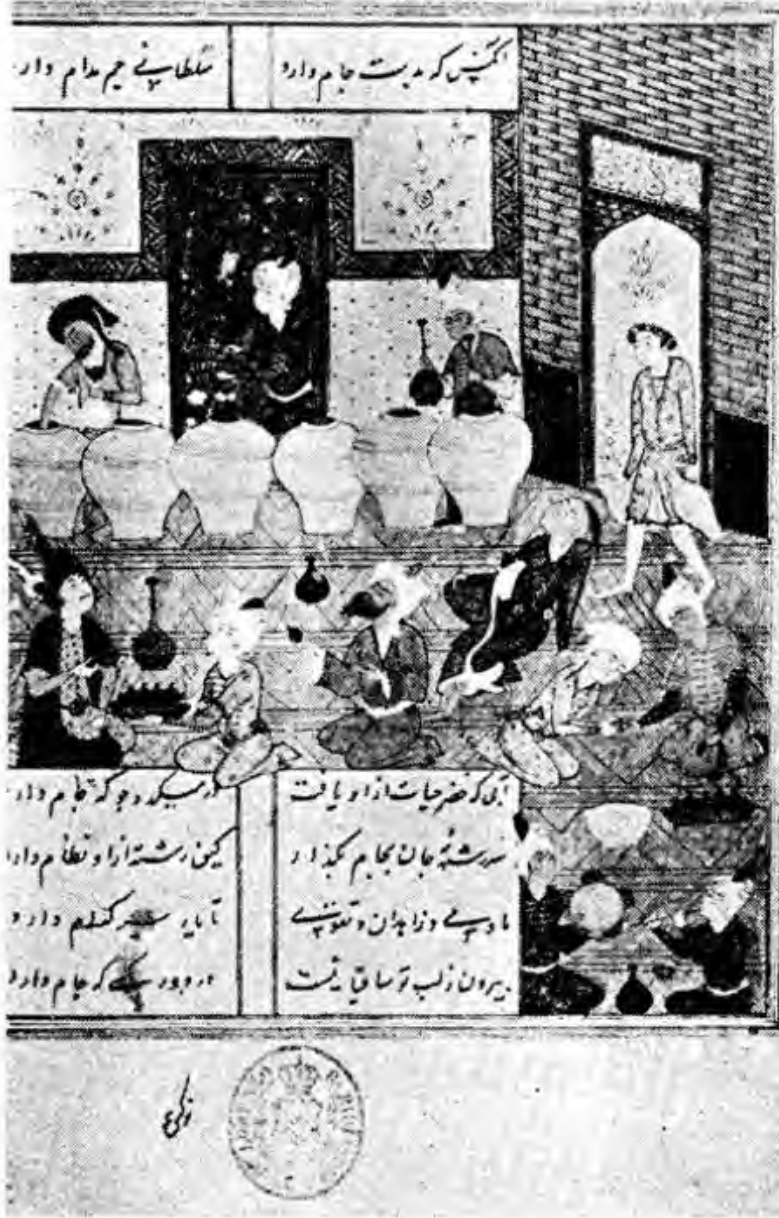 آنکس که بدست جام دارد سلطانی جم مدام دار
آبی که خضر حیات ازاو یافت در میکده جو که جام دار
سررشتهٔ جان بجام بگذار کین رشته ازاو نظام دار
ما و می و زاهدان و تقوی تا یار سر کدام دارد
بیرون ز لب تو ساقیا نیست در دور کسی که جام دارد